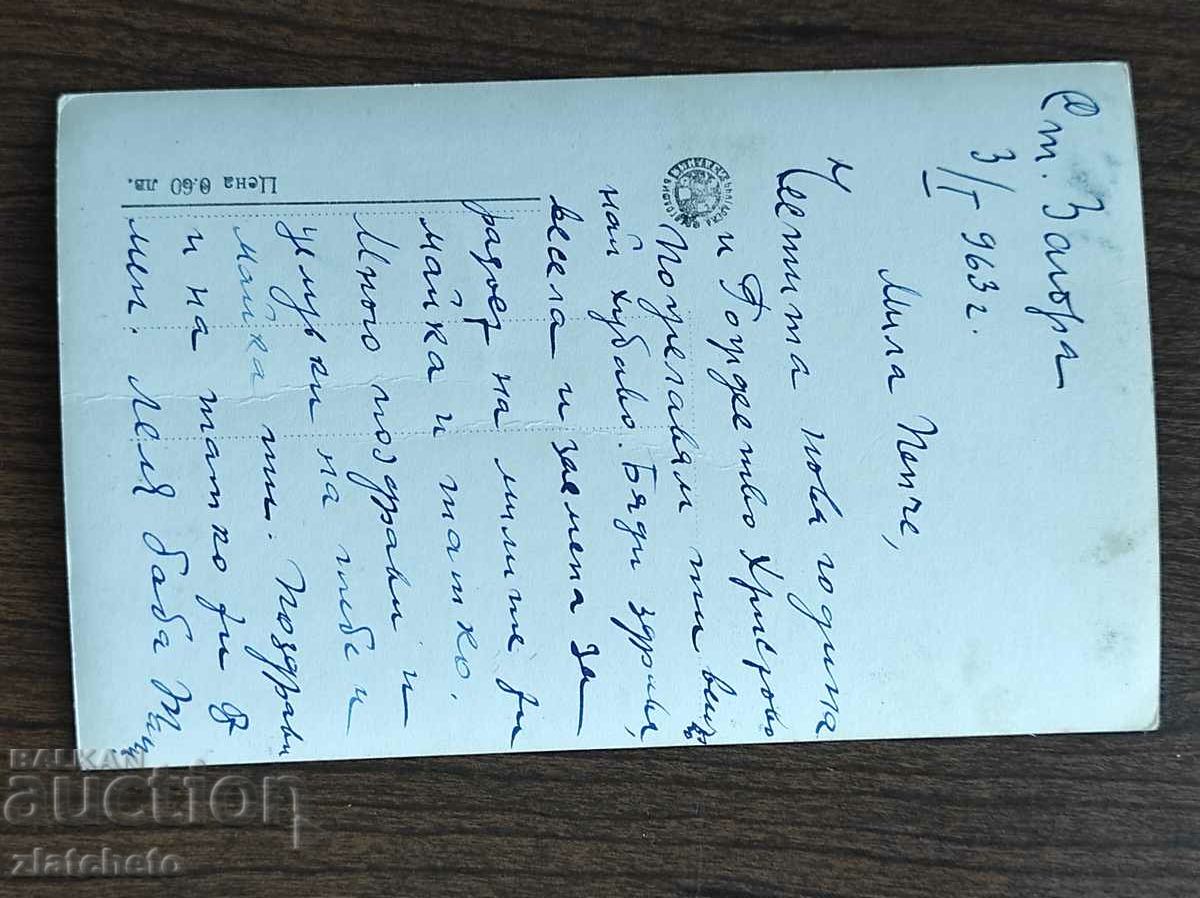 Ст. Загора
3/I 963 г.
Мила Пепче,
Честита нова година
и Рождество Христово
Пожелавам ти всичко
най хубаво. Бъди здрава,
весела и засмена за
радост на милите си
майка и татко.
Много поздрави и
целувки на тебе и
майка ти. Поздрави
и на татко си от
мен. Леля баба
Цена 0.60 лв.
BALKAN
auction
zlatcheto